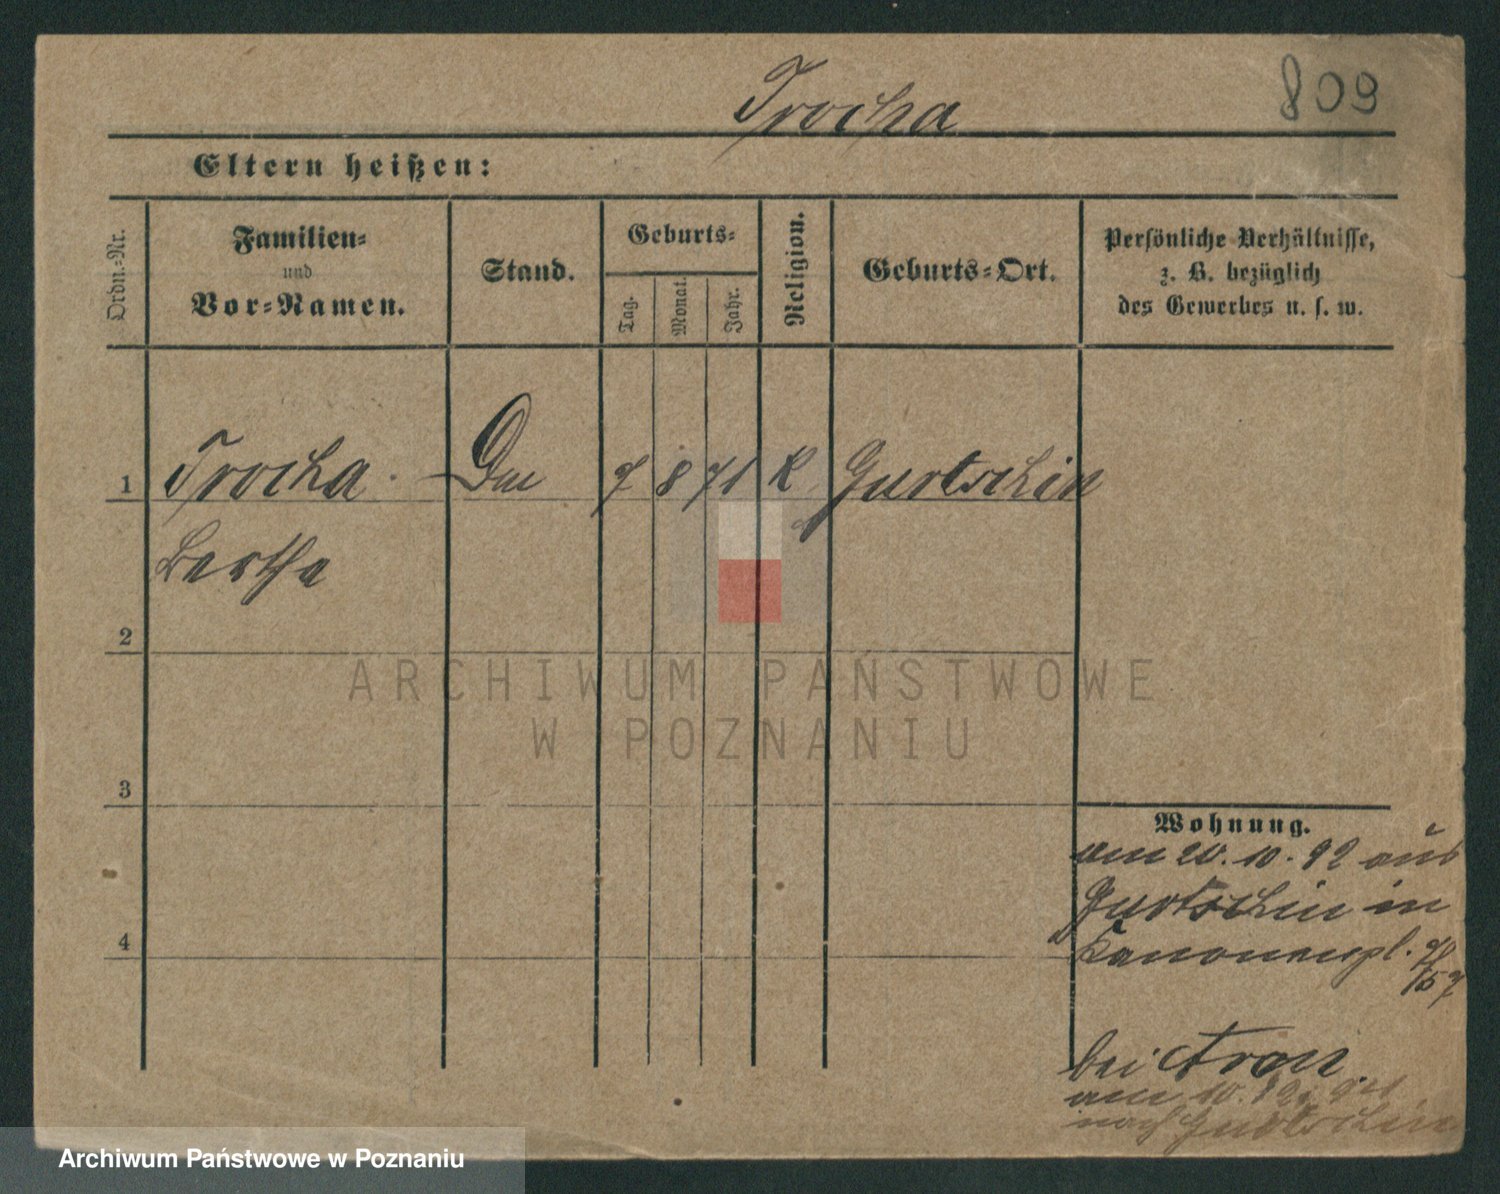 Trocha
809
Eltern heißen:
Ordn.-Nr.
Familien-
und
Vor-Namen.
Stand.
Geburts-
Tag.
Monat.
Jahr.
Religion.
Geburts-Ort.
Persönliche Verhältnisse,
z. B. bezüglich
des Gewerbes u. s. w.
1 Trocha 7 8 71 K Gurtschin
Bertha
2
3
4
Wohnung.
am 20. 10. 92 aus
Gurtschin in
Kanonenpl.
bei Aron
am 10.
nach Gurtschin
ARCHIWUM PAŃSTWOWE
W POZNANIU
Archiwum Państwowe w Poznaniu